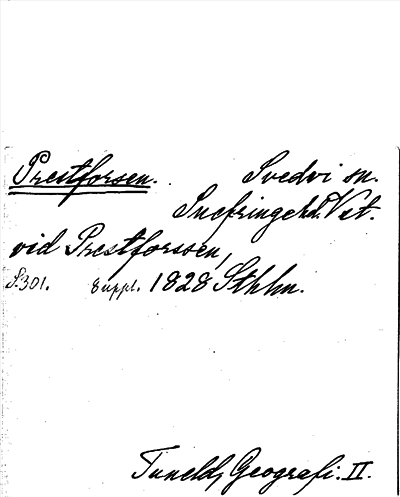 Prestforsen. Svedvi sn.
Snefringe hd. Vst.
vid Prestforssen,
S.301. Suppl. 1828 Sthlm.
Tuneld, Geografi. II.